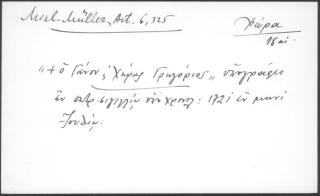 Mikl.-Müller, Act. 6, 325
Χώρα
18 αἰ.
"+ ὁ Γάνου ς Χώρας Γρηγόριος" ὑπογράφει
ἐν πατρ. σιγιλλίῳ τοῦ χρον. : 1721 ἐν μηνὶ
Ἰουλίῳ.